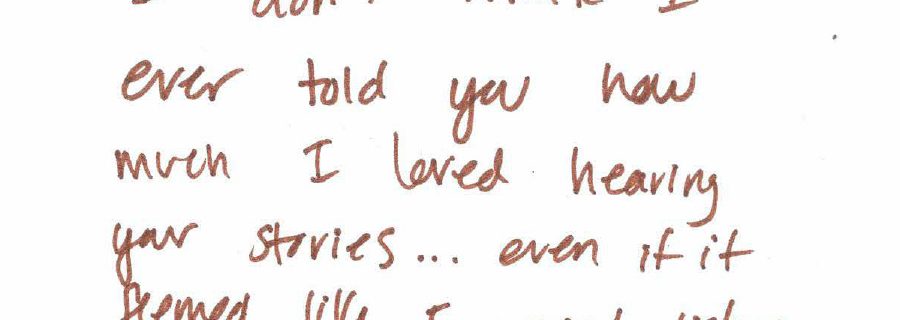 I don't think I
ever told you how
much I loved hearing
your stories... even if it
seemed like I